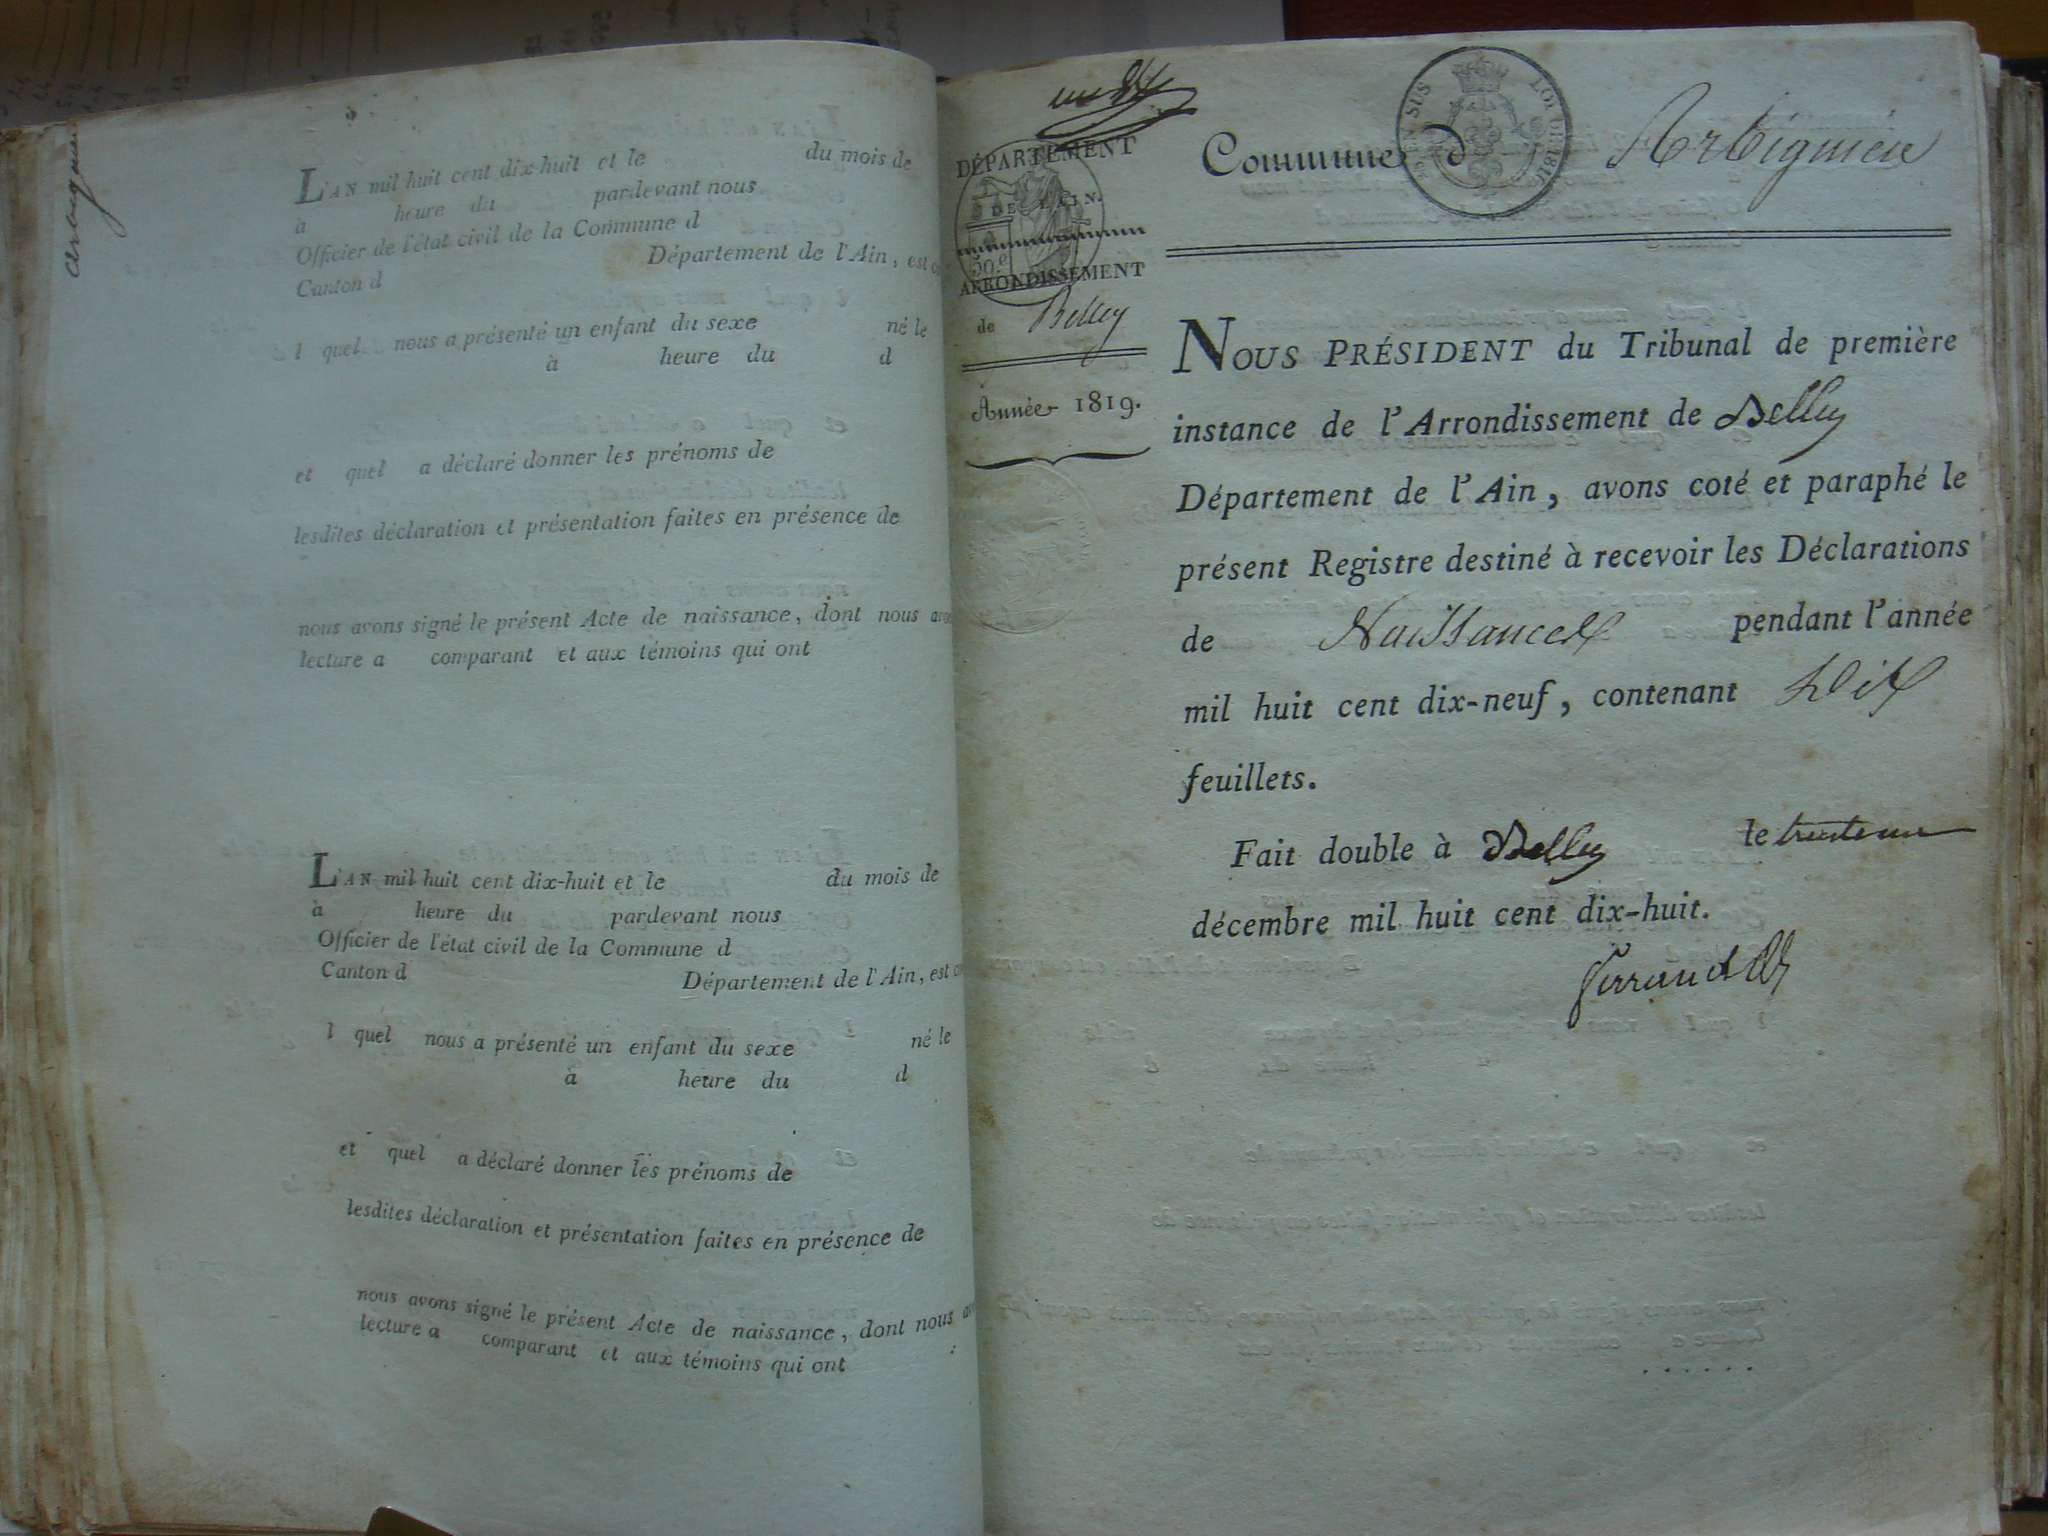 arbignieu
L'AN mil huit cent dix-huit et le du mois de
à heure du pardevant nous
Officier de l'état civil de la Commune d
Canton d Département de l'Ain, est
l quel nous a présenté un enfant du sexe né le
à heure du d
et quel a déclaré donner les prénoms de
lesdites déclaration et présentation faites en présence de
nous avons signé le présent Acte de naissance, dont nous
lecture a comparant et aux témoins qui ont
L'AN mil huit cent dix-huit et le du mois de
à heure du pardevant nous
Officier de l'état civil de la Commune d
Canton d Département de l'Ain, est
l quel nous a présenté un enfant du sexe né le
à heure du d
et quel a déclaré donner les prénoms de
lesdites déclaration et présentation faites en présence de
nous avons signé le présent Acte de naissance, dont nous
lecture a comparant et aux témoins qui ont
DÉPARTEMENT
DE L'AIN.
50.e
ARRONDISSEMENT
de Belley
Année 1819.
Commune d' Arbignieu
EN SUS LOI DE 1816
NOUS PRÉSIDENT du Tribunal de première
instance de l'Arrondissement de Belley
Département de l'Ain, avons coté et paraphé le
présent Registre destiné à recevoir les Déclarations
de Naissances pendant l'année
mil huit cent dix-neuf, contenant Dix
feuillets.
Fait double à Belley le trente un
décembre mil huit cent dix-huit.